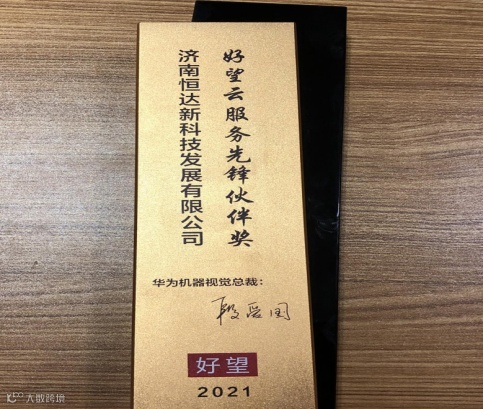 好望云服务先锋伙伴奖
济南恒达新科技发展有限公司
华为机器视觉总裁：
段爱国
好望
2021
大数跨境